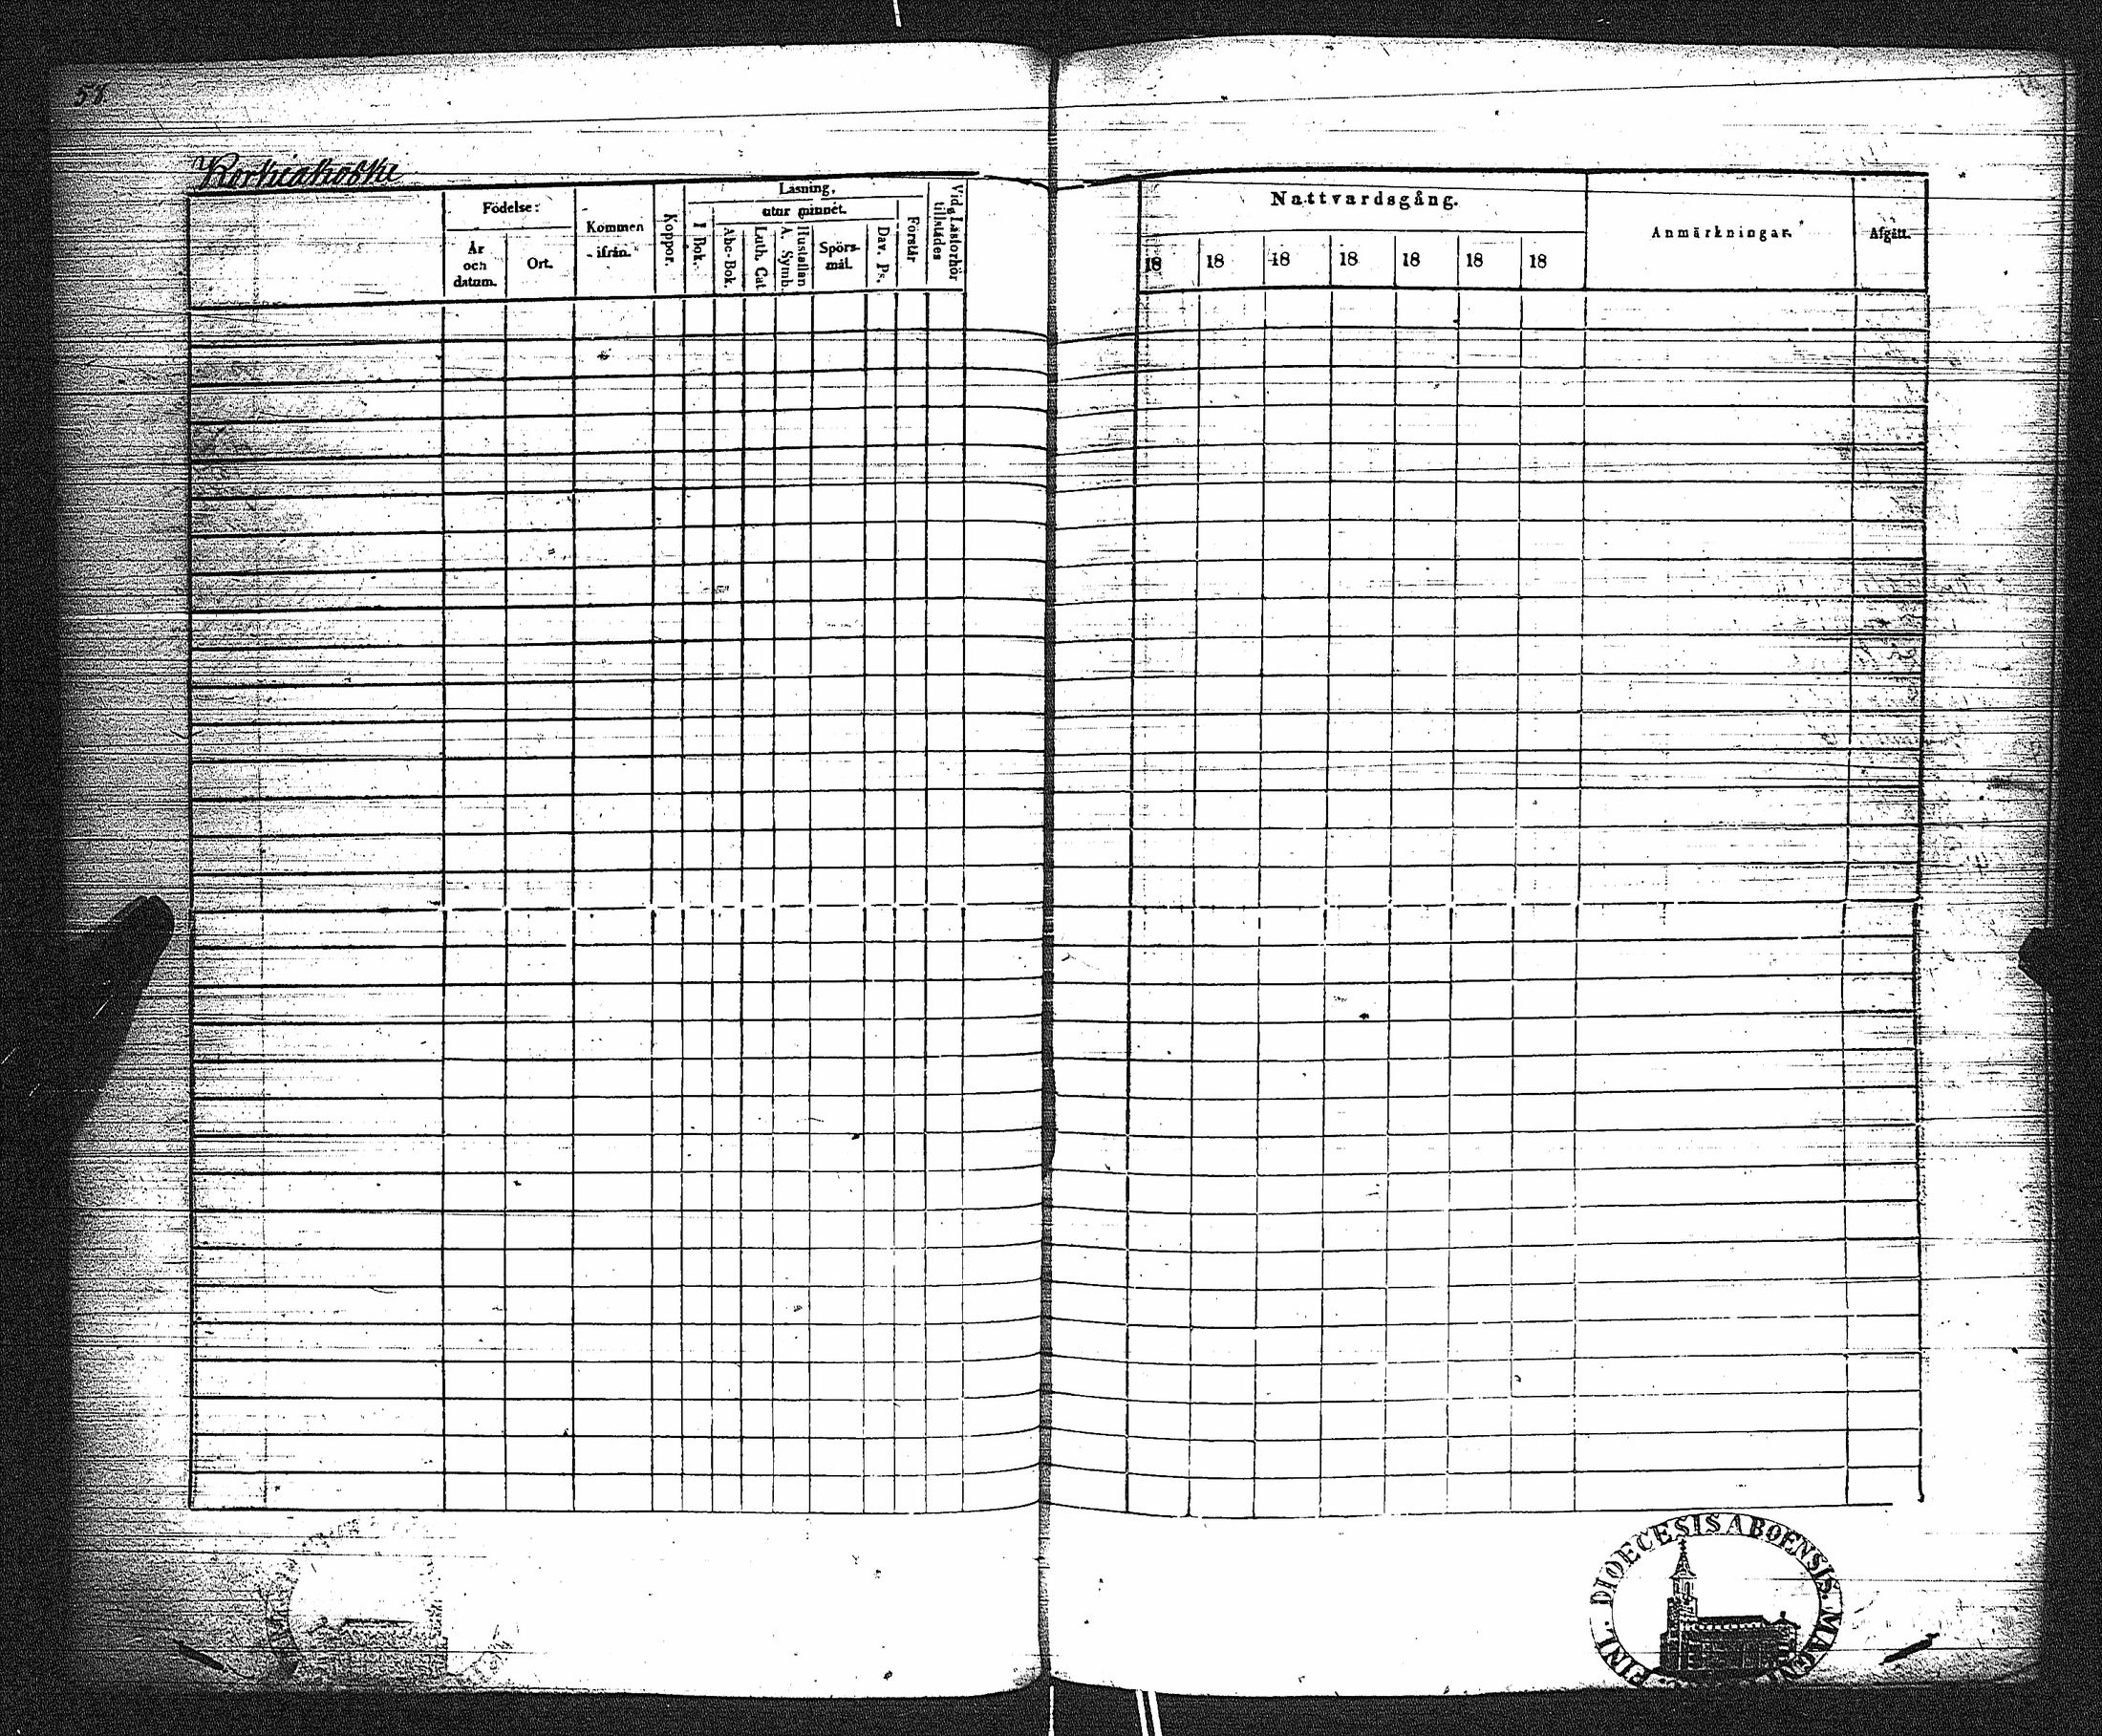 58
Korkiakoski
Födelse:
År
och
datum.
Ort.
Kommen
ifrån.
Koppor.
Läsning,
utur minnet.
I Bok.
Abc-Bok.
Luth. Cat
Hustaflan
A. Symb.
Spörs-
mål.
Dav. Ps.
Förstår
Vid Läsförhör
tillstädes
Nattvardsgång.
18 18 18 18 18 18 18
Anmärkningar.
Afgått.
DIOECESIS ABOENSIS.